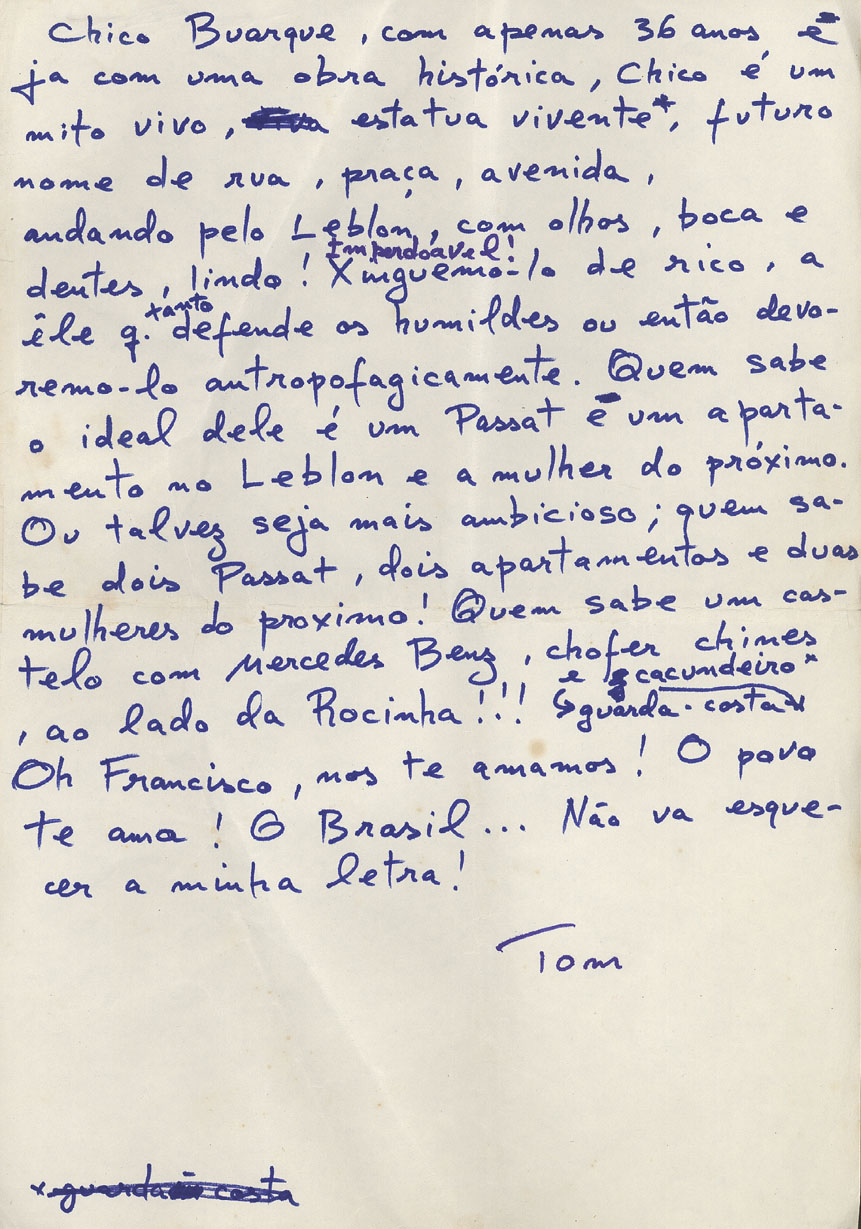 Chico Buarque, com apenas 36 anos, e
ja com uma obra histórica, Chico é um
mito vivo, estatua vivente*, futuro
nome de rua, praça, avenida,
andando pelo Leblon, com olhos, boca e
Imperdoável!
dentes, lindo! Xinguemo-lo de rico, a
tanto
êle q. defende os humildes ou então devo-
remo-lo antropofagicamente. Quem sabe
o ideal dele é um Passat e um aparta-
mento no Leblon e a mulher do próximo.
Ou talvez seja mais ambicioso; quem sa-
be dois Passat, dois apartamentos e duas
mulheres do proximo! Quem sabe um cas-
telo com Mercedes Benz, chofer chines
e cacundeiro*
, ao lado da Rocinha!!! ↳guarda-costax
Oh Francisco, nos te amamos! O povo
te ama! O Brasil... Não va esque-
cer a minha letra!
Tom
x guarda costa